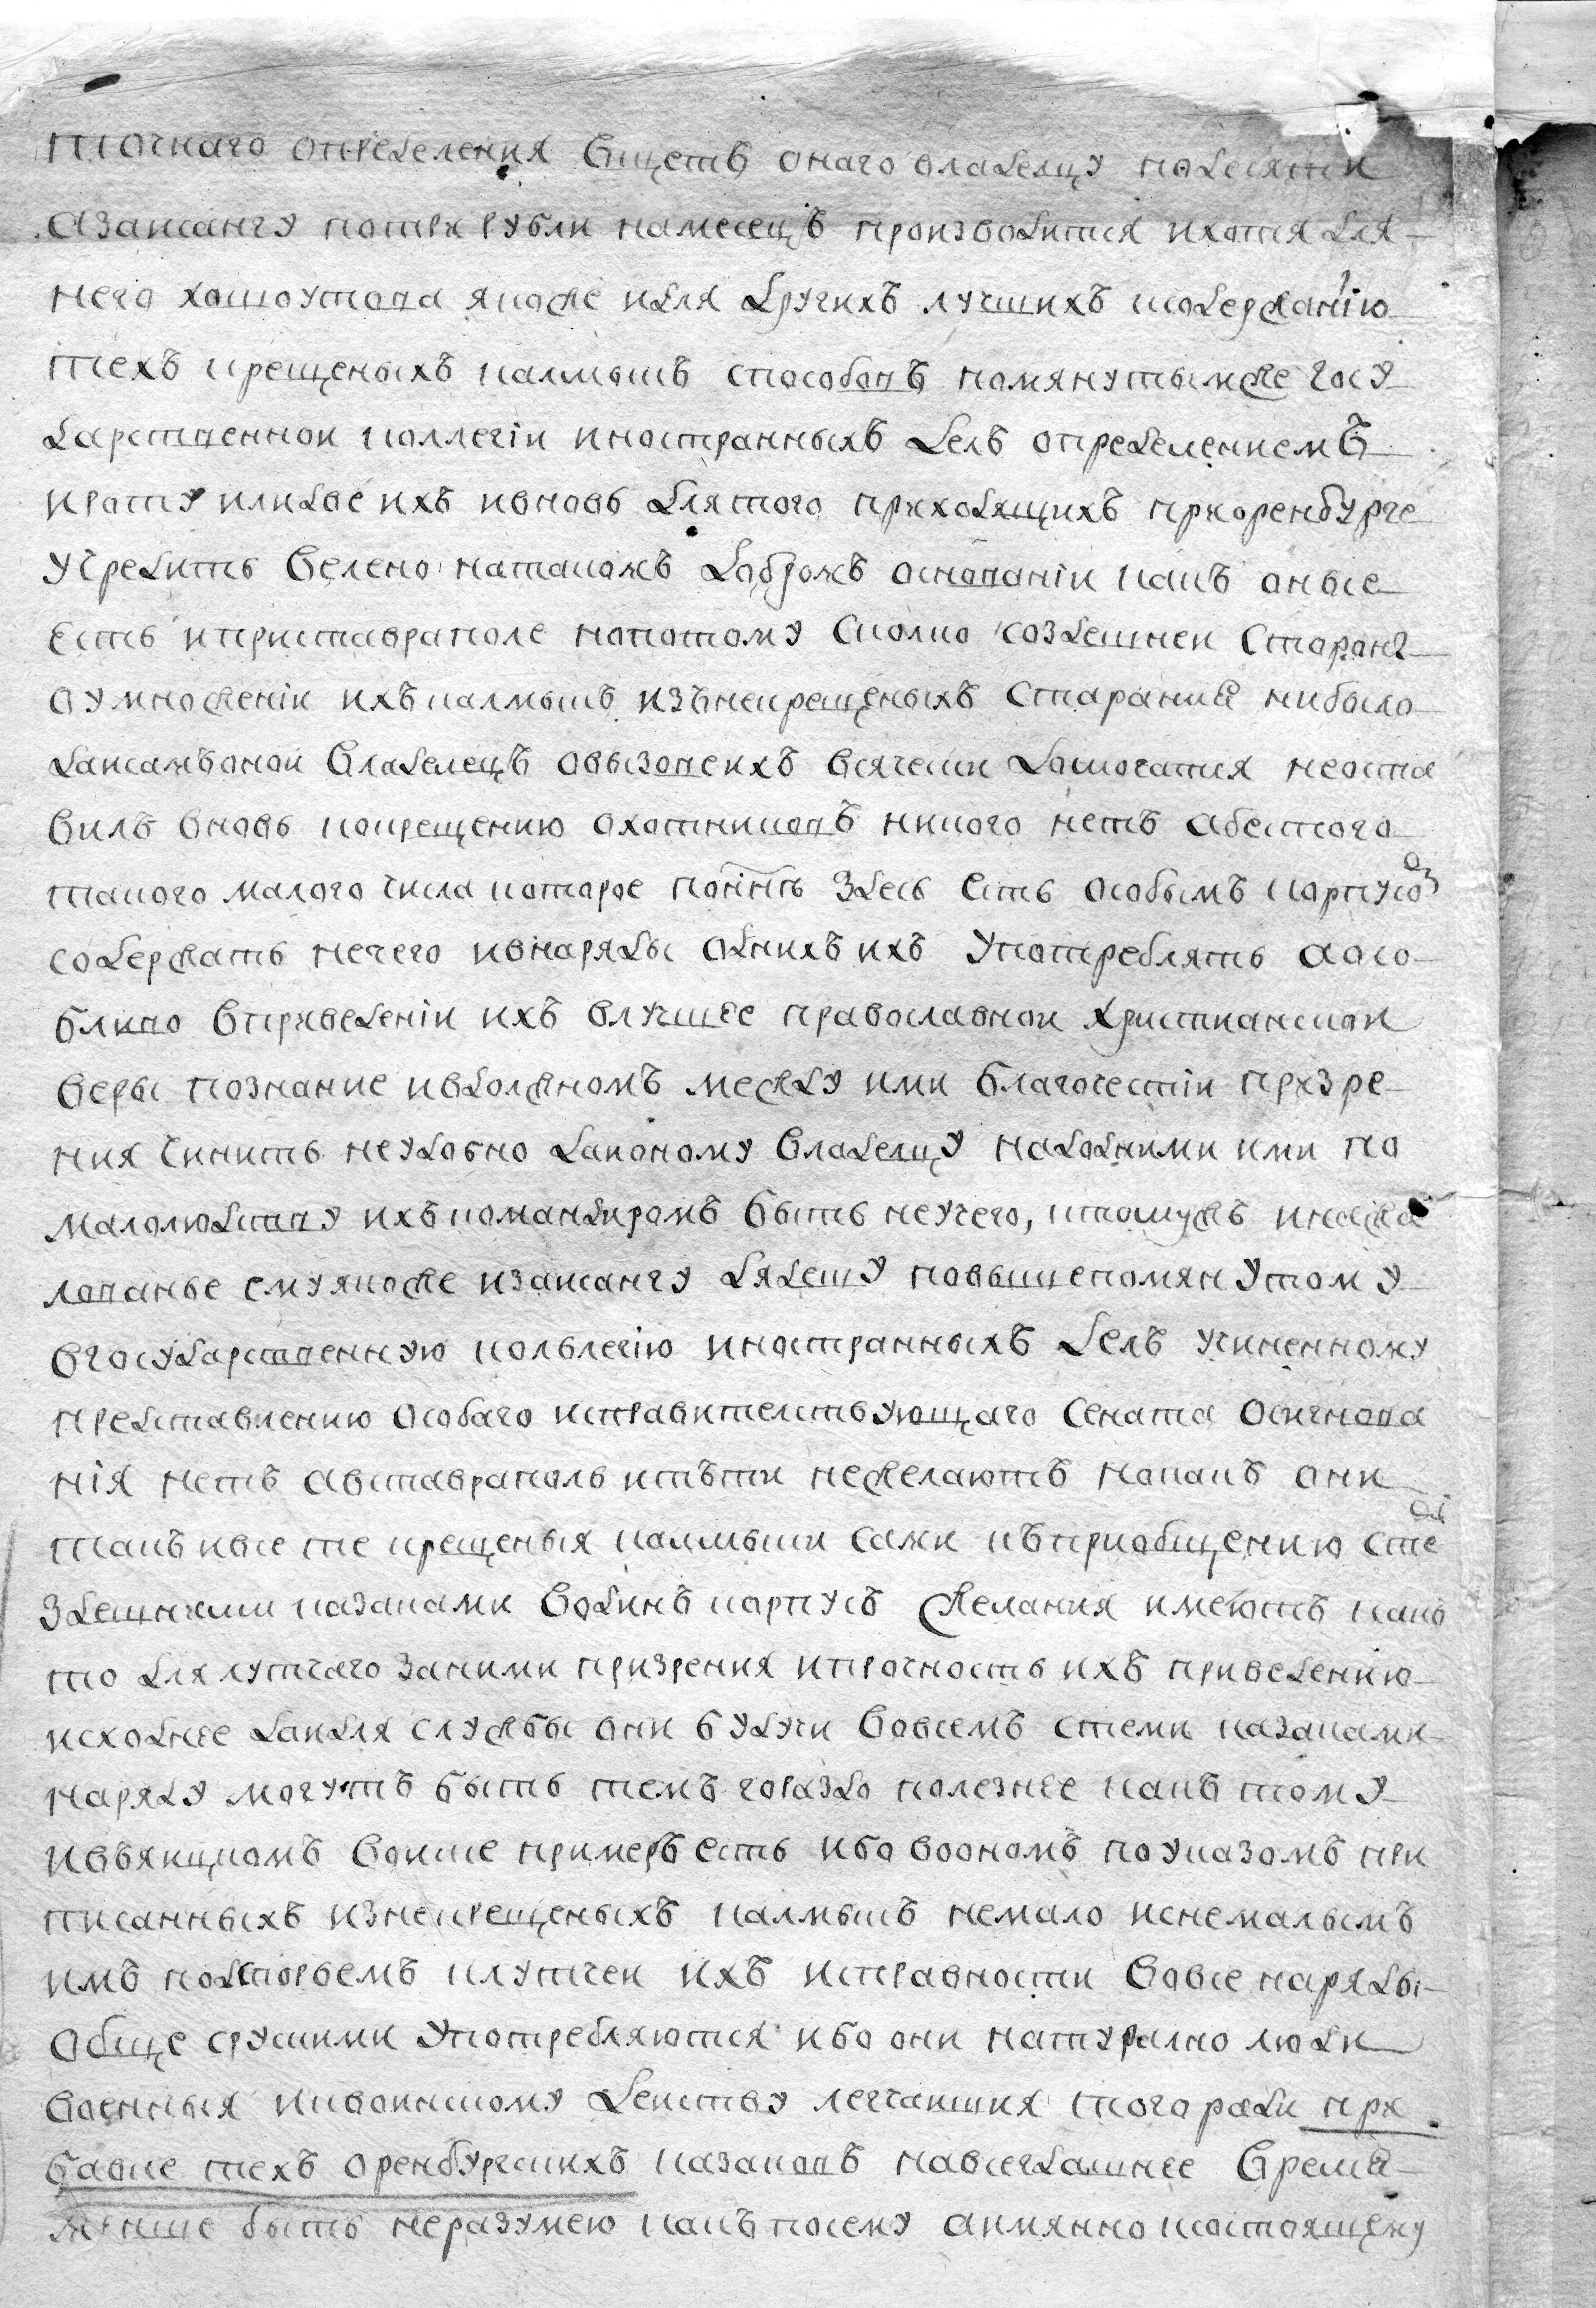 точнаго определения вщетъ онаго владелцу подесяти
азаисангу потри рубли намесецъ производится ихотя для
него хошоутова якоже идля другихъ лучшихъ ксодержанию
техъ крещеныхъ калмыкъ способовъ помянутымже госу
дарственной коллегіи иностранныхъ делъ определениемъ
кроту илидве ихъ ивновь длятого приходящихъ приоренбурге
учредить велено натакомъ добромъ основаніи какъ оные
есть иприставраполе нопотому сколко создешней стороны
оумноженіи ихъ калмыкъ изънекрещеныхъ старания нибыло
дакисамъоной владелецъ овызовеихъ всячески домогатся неоста
вилъ вновь покрещению охотниковъ никого нетъ абестого
такого малого числа которое поннѣ здесь есть особымъ корпусо
содержать нечего ивнаряды однихъ ихъ употреблять аосо
бливо вприведеніи ихъ влучшее православной христианской
веры познание ивдолжномъ между ими благочестіи призре
ния чинить неудобно даионому владелцу надодними ими по
малолюдству ихъ командиромъ быть неучего, ктомужъ инажа
лованье емуякоже изаисангу дядешу повышепомянутому
вгосударственную колълегію иностранныхъ делъ учиненному
представлению особаго исправителствующаго сената осигнова
нія нетъ авставраполь итъти нежелаютъ нокакъ они
такъ ивсе те крещеныя калмыки сами къприобщению сте
здешними казаками водинъ корпусъ желания имеютъ какъ
то для лутчаго заними призрения ипрочность ихъ приведению
исходнее даидля службы они будучи вовсемъ стеми казаками
наряду могутъ быть темъ гораздо полезнее какъ тому
ивъяицкомъ воиске примеръ есть ибо воономъ поуказомъ при
писанныхъ изнекрещеныхъ калмыкъ немало инемалымъ
имъ подспорьемъ клутчей ихъ исправности вовсе наряды
обще срускими употребляются ибо они натурално люди
военныя иквоинскому действу легчайшия того ради при
бавке техъ оренбургскихъ казаковъ навсегдашнее время
менше быть неразумею какъ посему аимянно ктостоящему